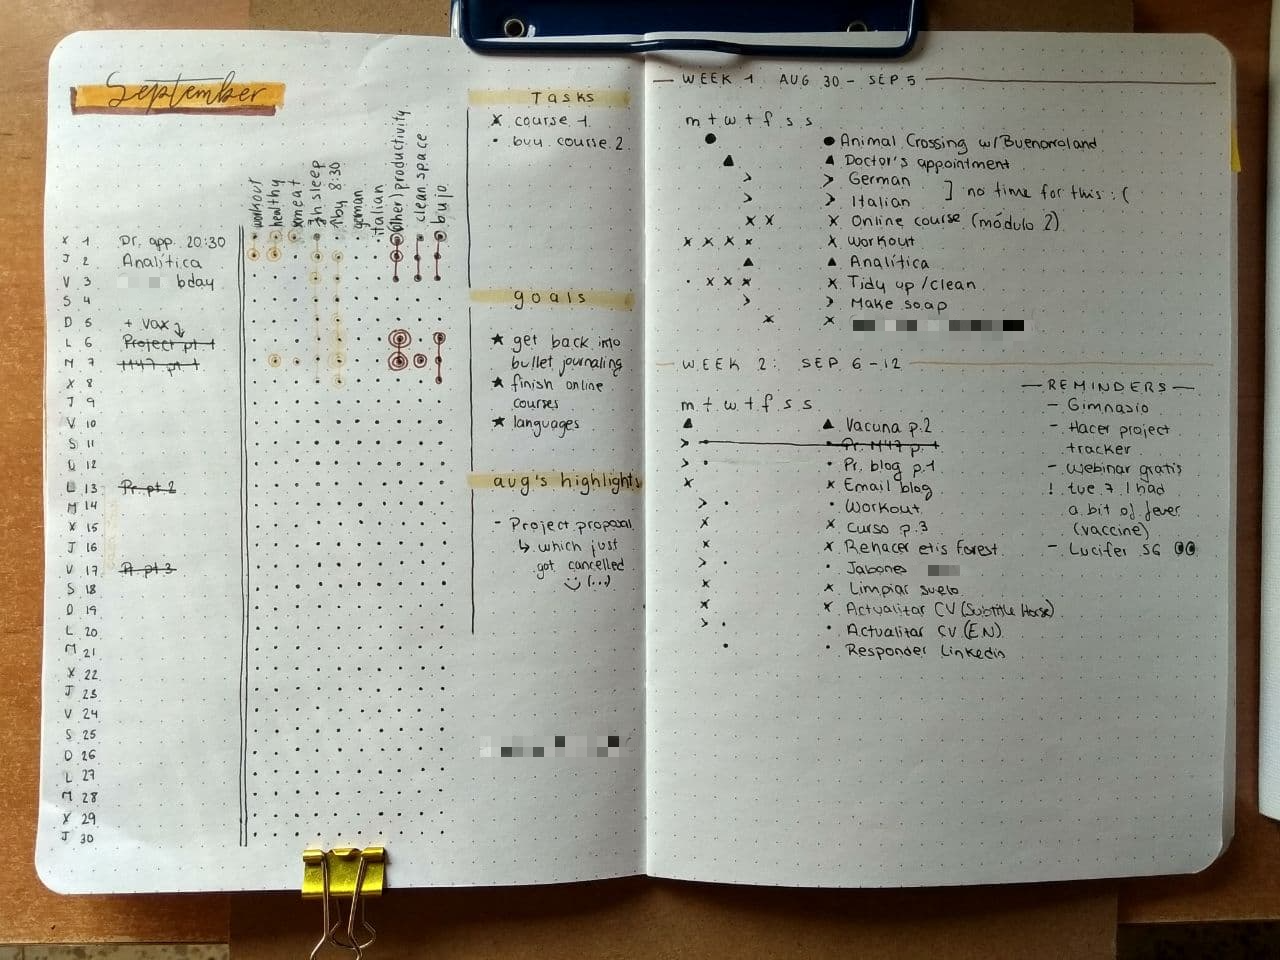 September
workout
healthy
xmeat
7h sleep
↑by 8:30
german
italian
(other) productivity
clean space
bujo
X 1 Dr. app. 20:30
J 2 Analítica
V 3 bday
S 4
D 5 + vax
L 6 Project pt 1
M 7 M47 pt 1
X 8
J 9
V 10
S 11
D 12
L 13 Pr. pt 2
M 14
X 15
J 16
V 17 Pr. pt 3
S 18
D 19
L 20
M 21
X 22
J 23
V 24
S 25
D 26
L 27
M 28
X 29
J 30
Tasks
x course 1
• buy course 2
goals
★ get back into
bullet journaling
★ finish online
courses
★ languages
aug's highlights
- Project proposal
↳ which just
got cancelled
(...)
WEEK 1 AUG 30 - SEP 5
m t w t f s s
● Animal Crossing w/Buenorroland
▲ Doctor's appointment
> German
> Italian ] no time for this :(
x Online course (módulo 2)
x Workout
▲ Analítica
x Tidy up/clean
> Make soap
x
WEEK 2: SEP 6-12
m t w t f s s
▲ Vacuna p.2
• Pr. M47 p. 1
• Pr. blog p.1
x Email blog
• Workout
x Curso p.3
x Rehacer etis Forest
• Jabones
x Limpiar suelo
x Actualitar CV (Subtitle Horse)
• Actualitar CV (EN)
• Responder Linkedin
— REMINDERS —
- Gimnasio
- Hacer project
tracker
- Webinar gratis
! tue 7 I had
a bit of fever
(vaccine)
- Lucifer S6